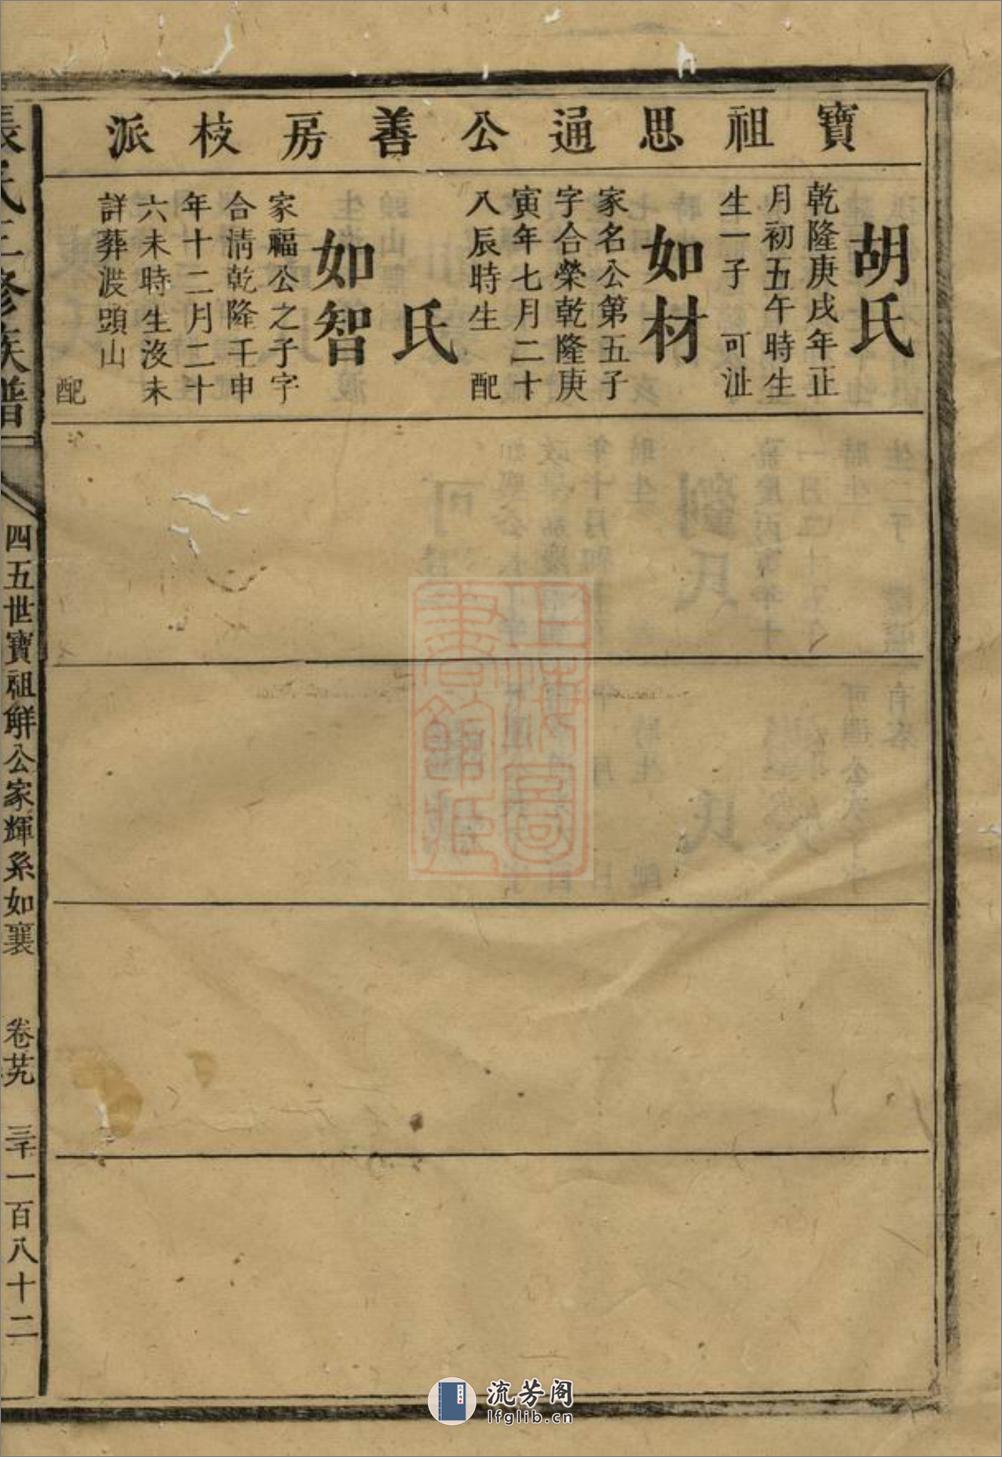 寶祖思通公善房枝派
胡氏
乾隆庚戌年正
月初五午時生
生一子　可沚
如材
家名公第五子
字合榮乾隆庚
寅年七月二十
八辰時生　配
氏
如智
家福公之子字
合清乾隆壬申
年十二月二十
六未時生沒未
詳葬渡頭山
配
張氏三修族譜
四五世寶祖觧公家輝系如襄
卷茺
三千一百八十二
上海圖
書館藏
流芳阁
lfglib.cn